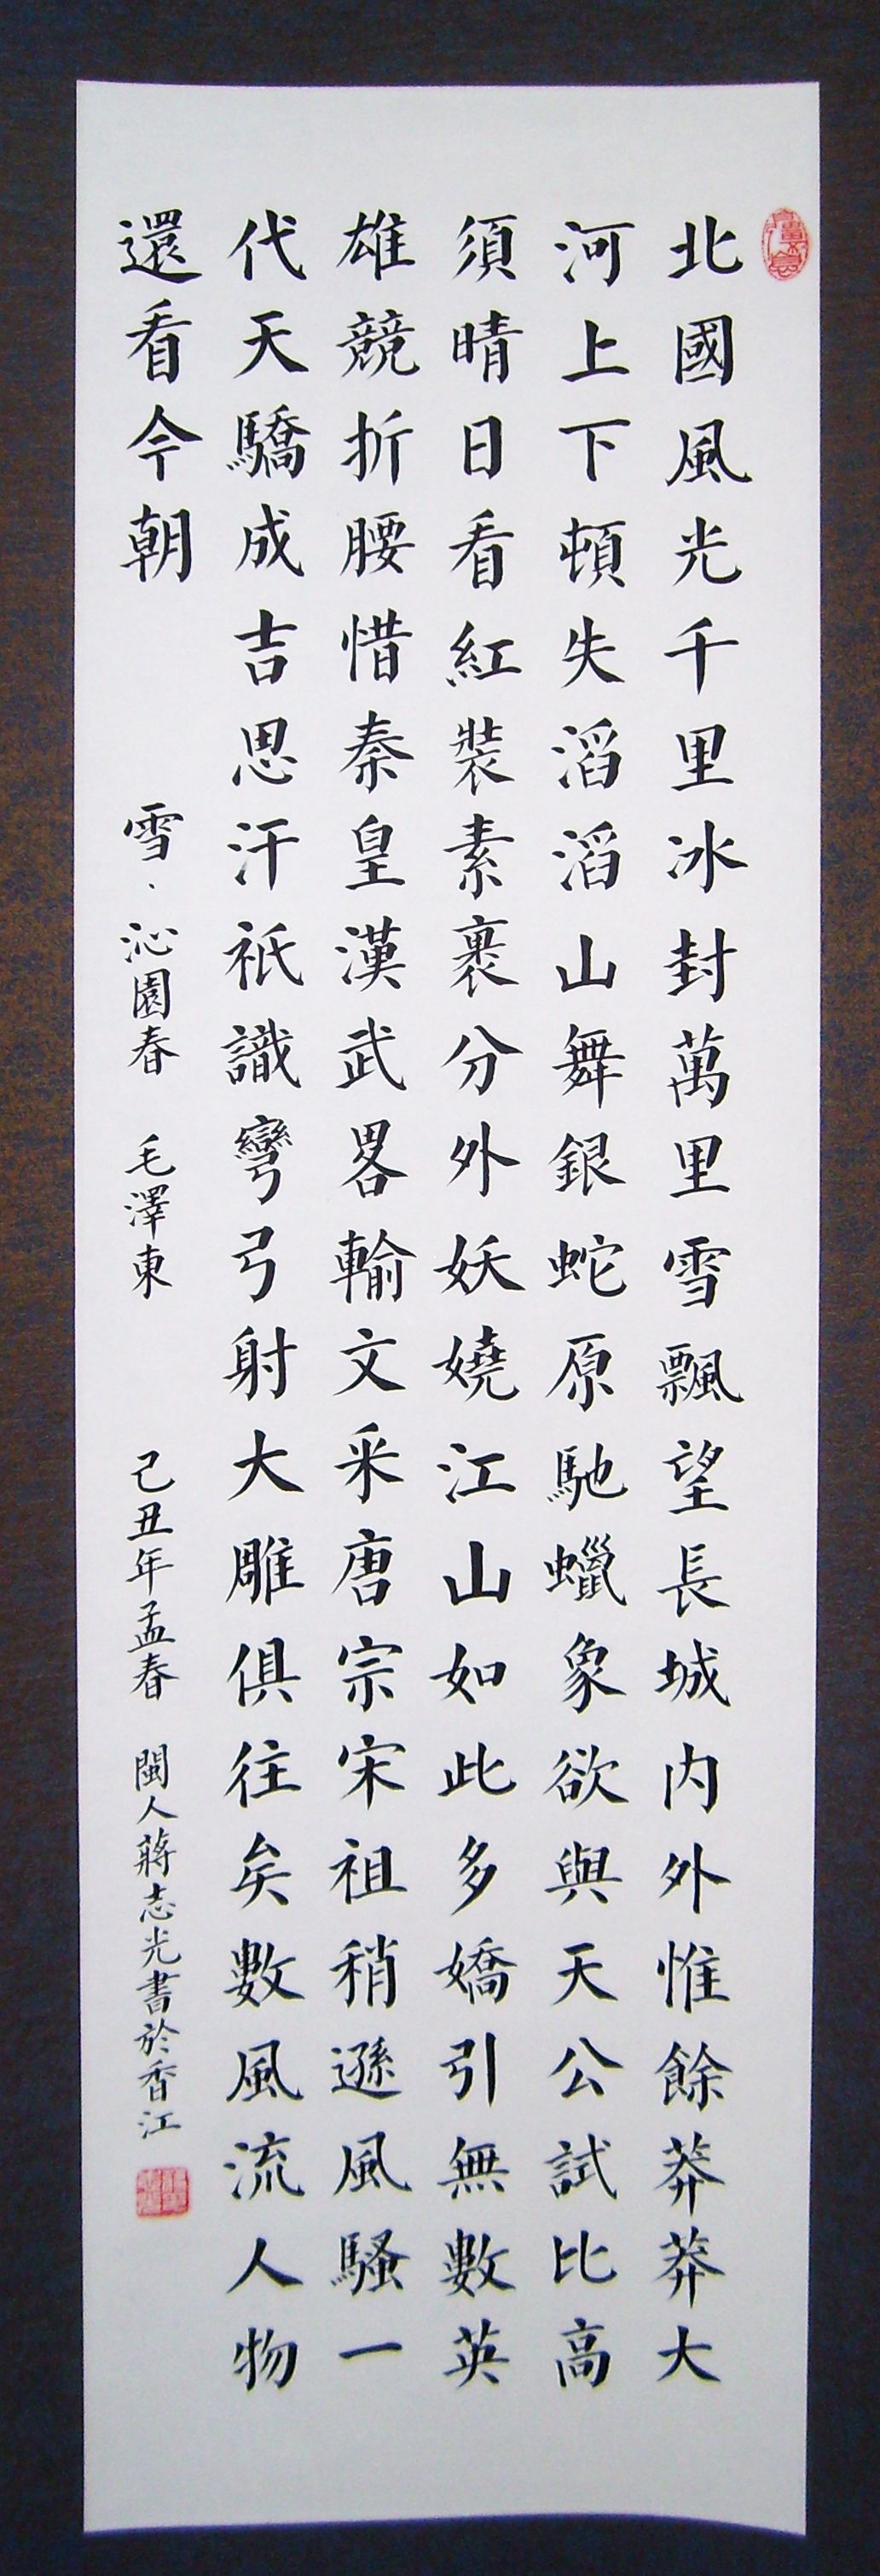 北國風光千里冰封萬里雪飄望長城内外惟餘莽莽大
河上下頓失滔滔山舞銀蛇原馳蠟象欲與天公試比高
須晴日看紅裝素裹分外妖嬈江山如此多嬌引無數英
雄競折腰惜秦皇漢武畧輸文采唐宗宋祖稍遜風騷一
代天驕成吉思汗祇識彎弓射大雕俱往矣數風流人物
還看今朝 雪·沁園春 毛澤東 己丑年孟春 閩人蔣志光書於香江